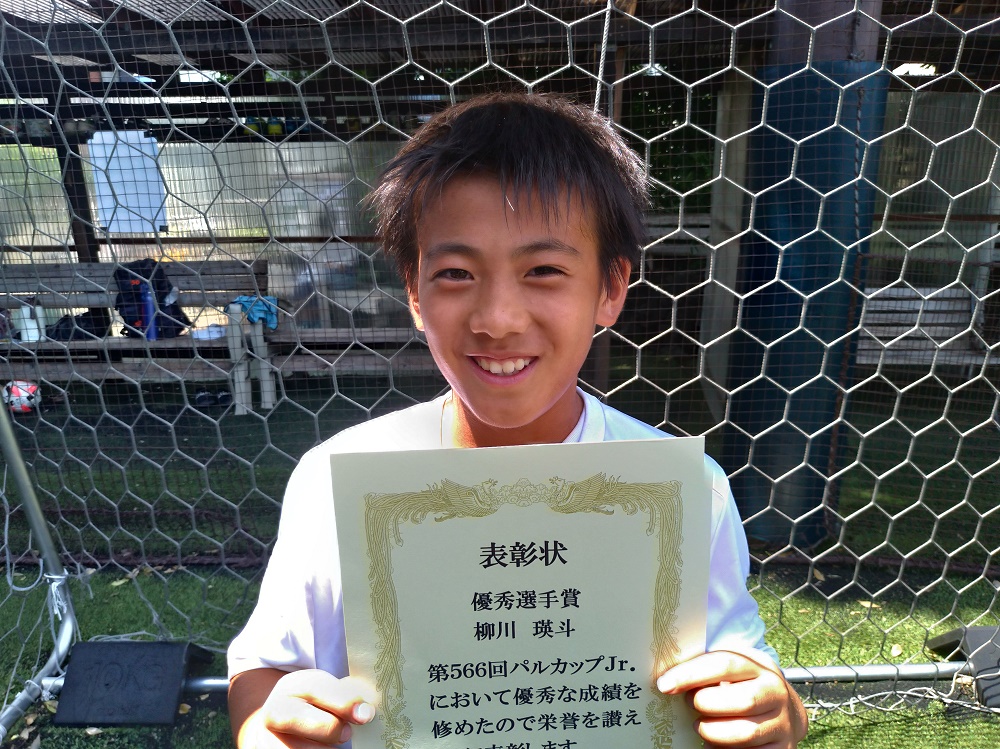 表彰状
優秀選手賞
柳川 瑛斗
第566回パルカップJr.
において優秀な成績を
修めたので栄誉を讃え
表彰します